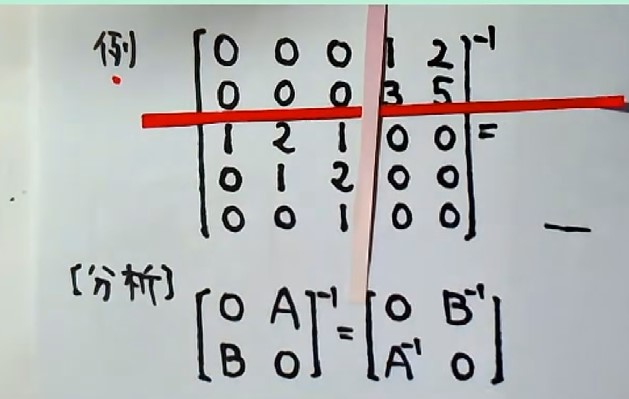 例 [0 0 0 1 2
0 0 0 3 5
1 2 1 0 0
0 1 2 0 0
0 0 1 0 0]⁻¹ = __
[分析] [0 A
B 0]⁻¹ = [0 B⁻¹
A⁻¹ 0]